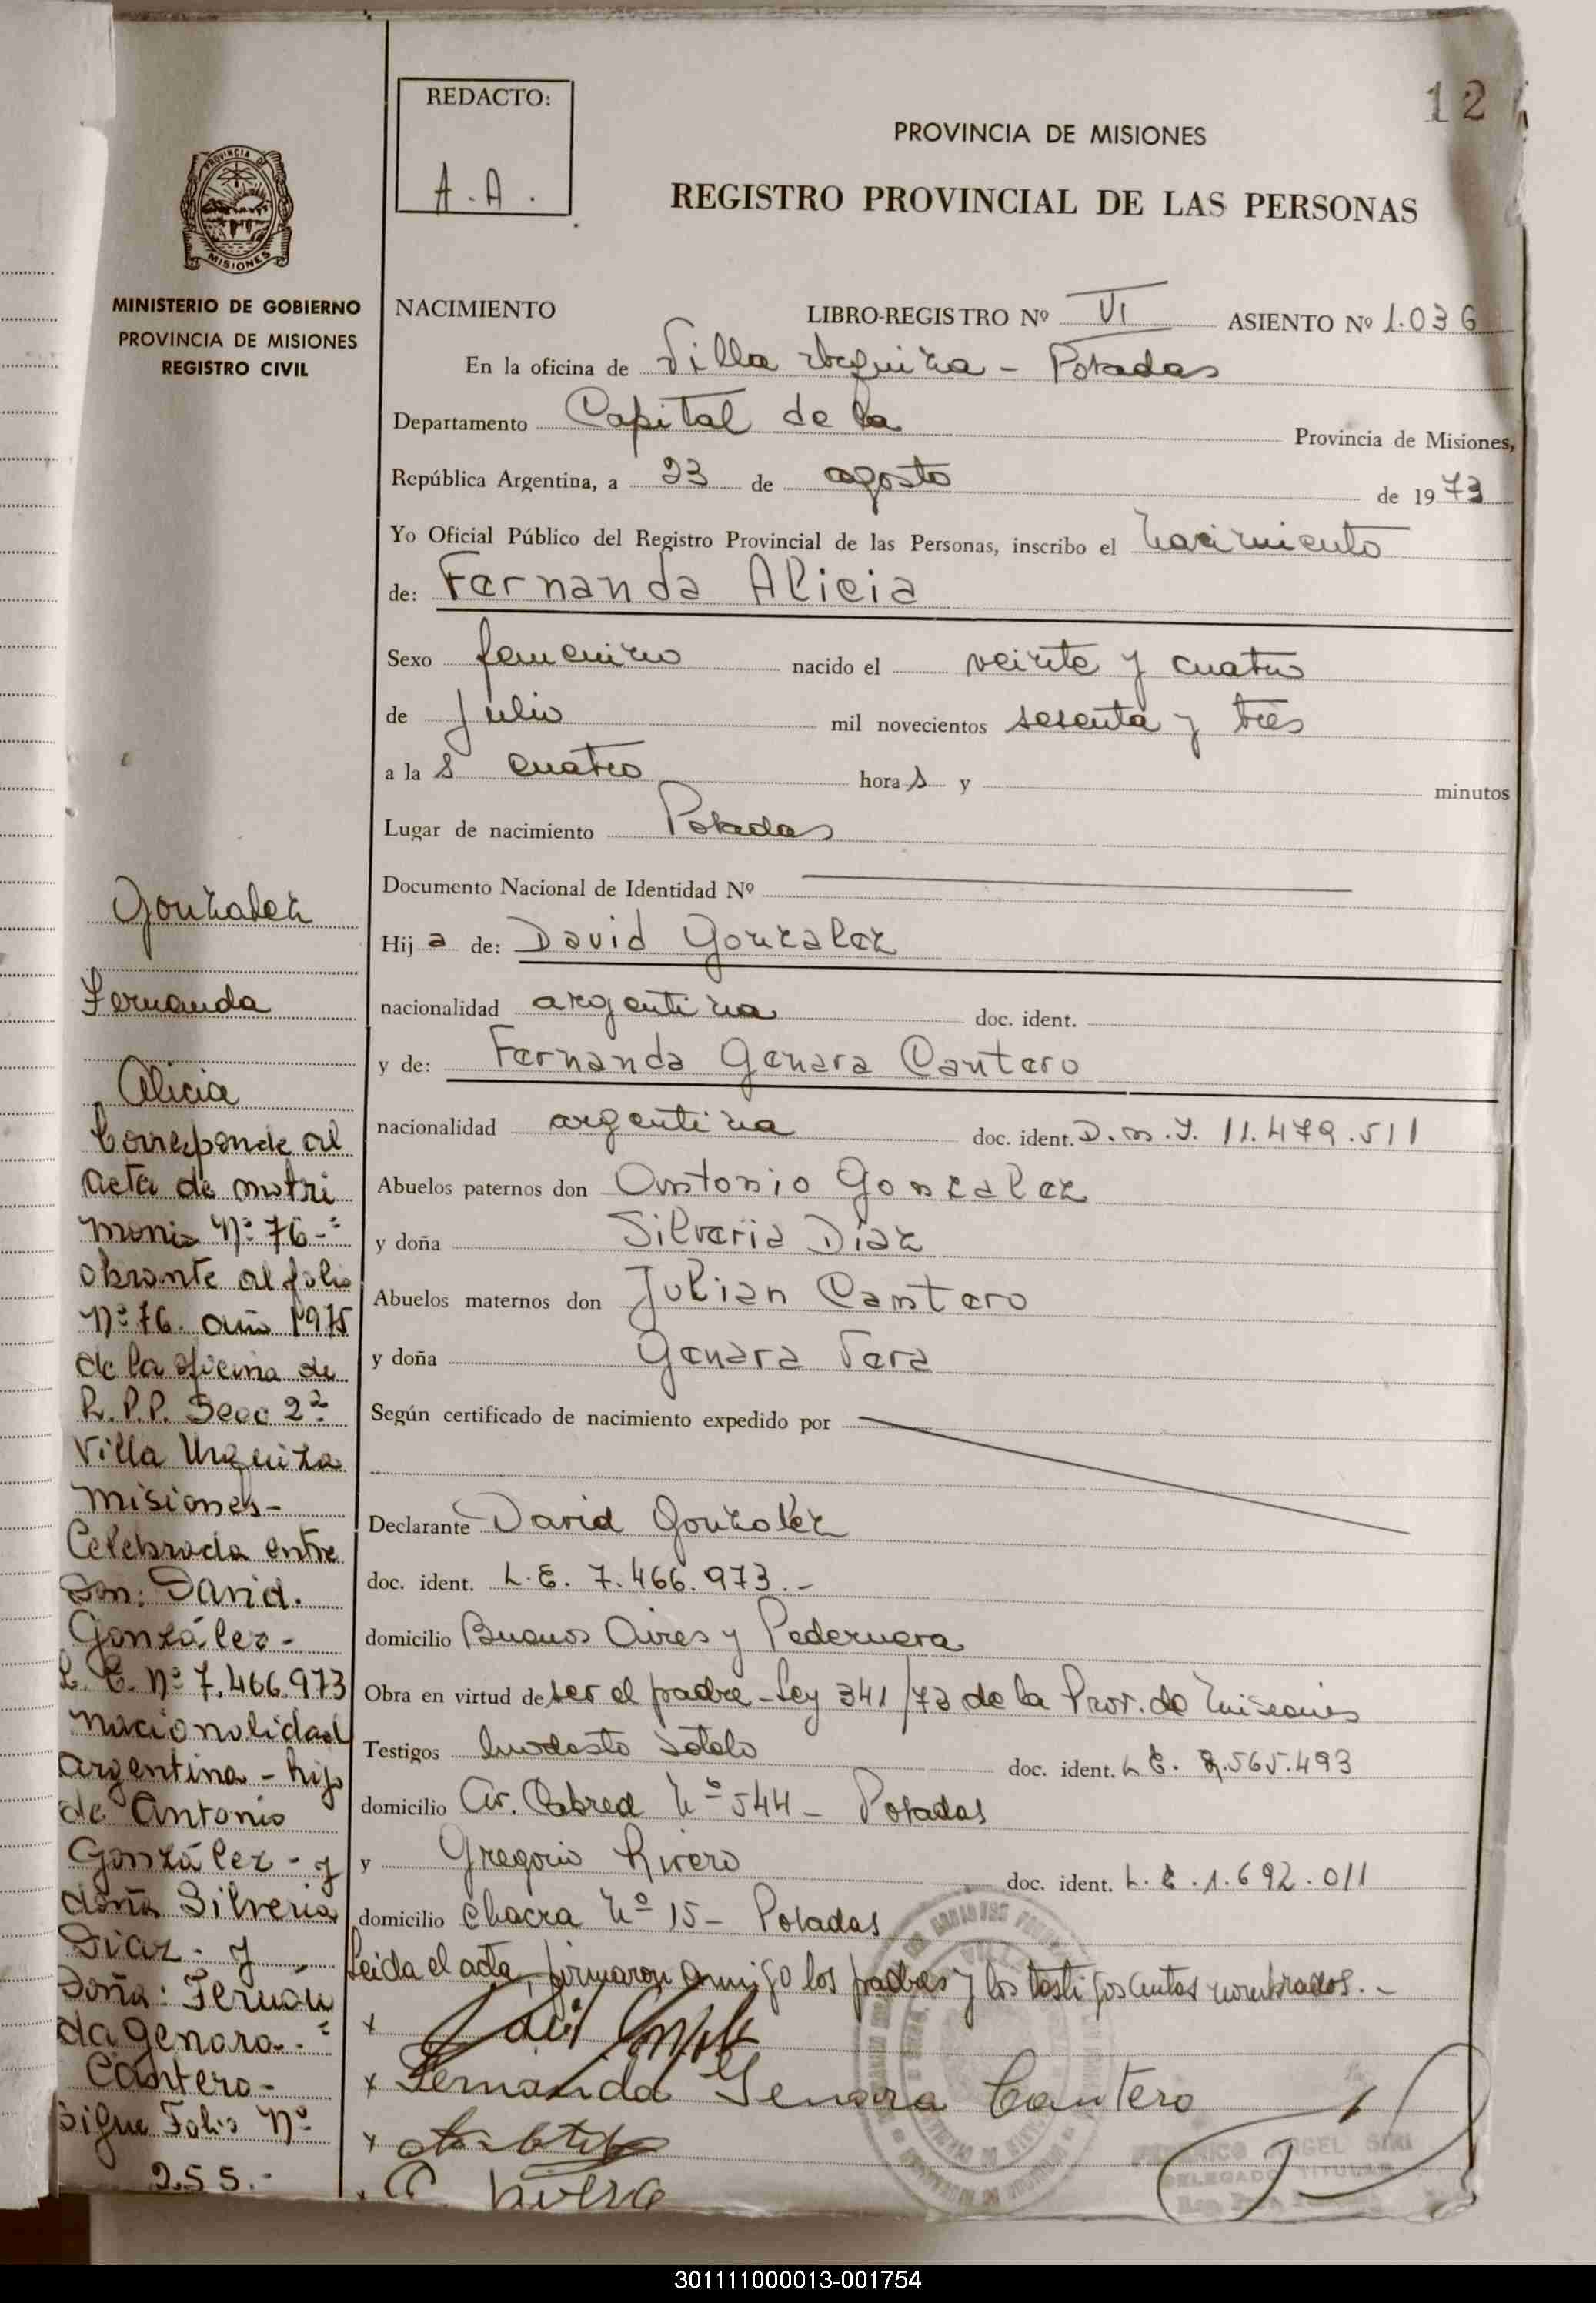 12
REDACTO:
A.A.
PROVINCIA DE MISIONES
REGISTRO PROVINCIAL DE LAS PERSONAS
PROVINCIA DE
MISIONES
MINISTERIO DE GOBIERNO
PROVINCIA DE MISIONES
REGISTRO CIVIL
NACIMIENTO LIBRO-REGISTRO Nº VI ASIENTO Nº 1.036
En la oficina de Villa Urquiza - Posadas
Departamento Capital de la Provincia de Misiones,
República Argentina, a 23 de agosto de 1973
Yo Oficial Público del Registro Provincial de las Personas, inscribo el nacimiento
de: Fernanda Alicia
Sexo femenino nacido el veinte y cuatro
de Julio mil novecientos sesenta y tres
a las cuatro horas y minutos
Lugar de nacimiento Posadas
Documento Nacional de Identidad Nº
Hija de: David Gonzalez
nacionalidad argentina doc. ident.
y de: Fernanda Genara Cantero
nacionalidad argentina doc. ident. D.N.I. 11.479.511
Abuelos paternos don Antonio Gonzalez
y doña Silveria Díaz
Abuelos maternos don Julian Cantero
y doña Genara Vera
Según certificado de nacimiento expedido por
Declarante David Gonzalez
doc. ident. L.E. 7.466.973.-
domicilio Buenos Aires y Pedernera
Obra en virtud de ser el padre - Ley 341/73 de la Prov. de Misiones
Testigos Modesto Sotelo doc. ident. L.E. 565.493
domicilio Av. Cabred Nº 544 - Posadas
y Gregorio Rivero doc. ident. L.E. 1.692.011
domicilio Chacra Nº 15 - Posadas
Leida el acta, firmaron conmigo los padres y los testigos antes nombrados.-
x
x Fernanda Genara Cantero
x
Gonzalez
Fernanda
Alicia
Corresponde al
acta de matri
monio Nº 76-
obrante al folio
Nº 76. año 1975
de la oficina de
R.P.P. Secc 2ª
Villa Urquiza
Misiones-
Celebrada entre
Don: David.
González-
L.E. Nº 7.466.973
nacionalidad
argentina - hijo
de Antonio
González - y
doña Silveria
Diaz - y
Doña: Fernan
da Genara.-
Cantero-
Sigue Folio Nº
255.-
ANGEL SIRI
DELEGADO TITULAR
301111000013-001754